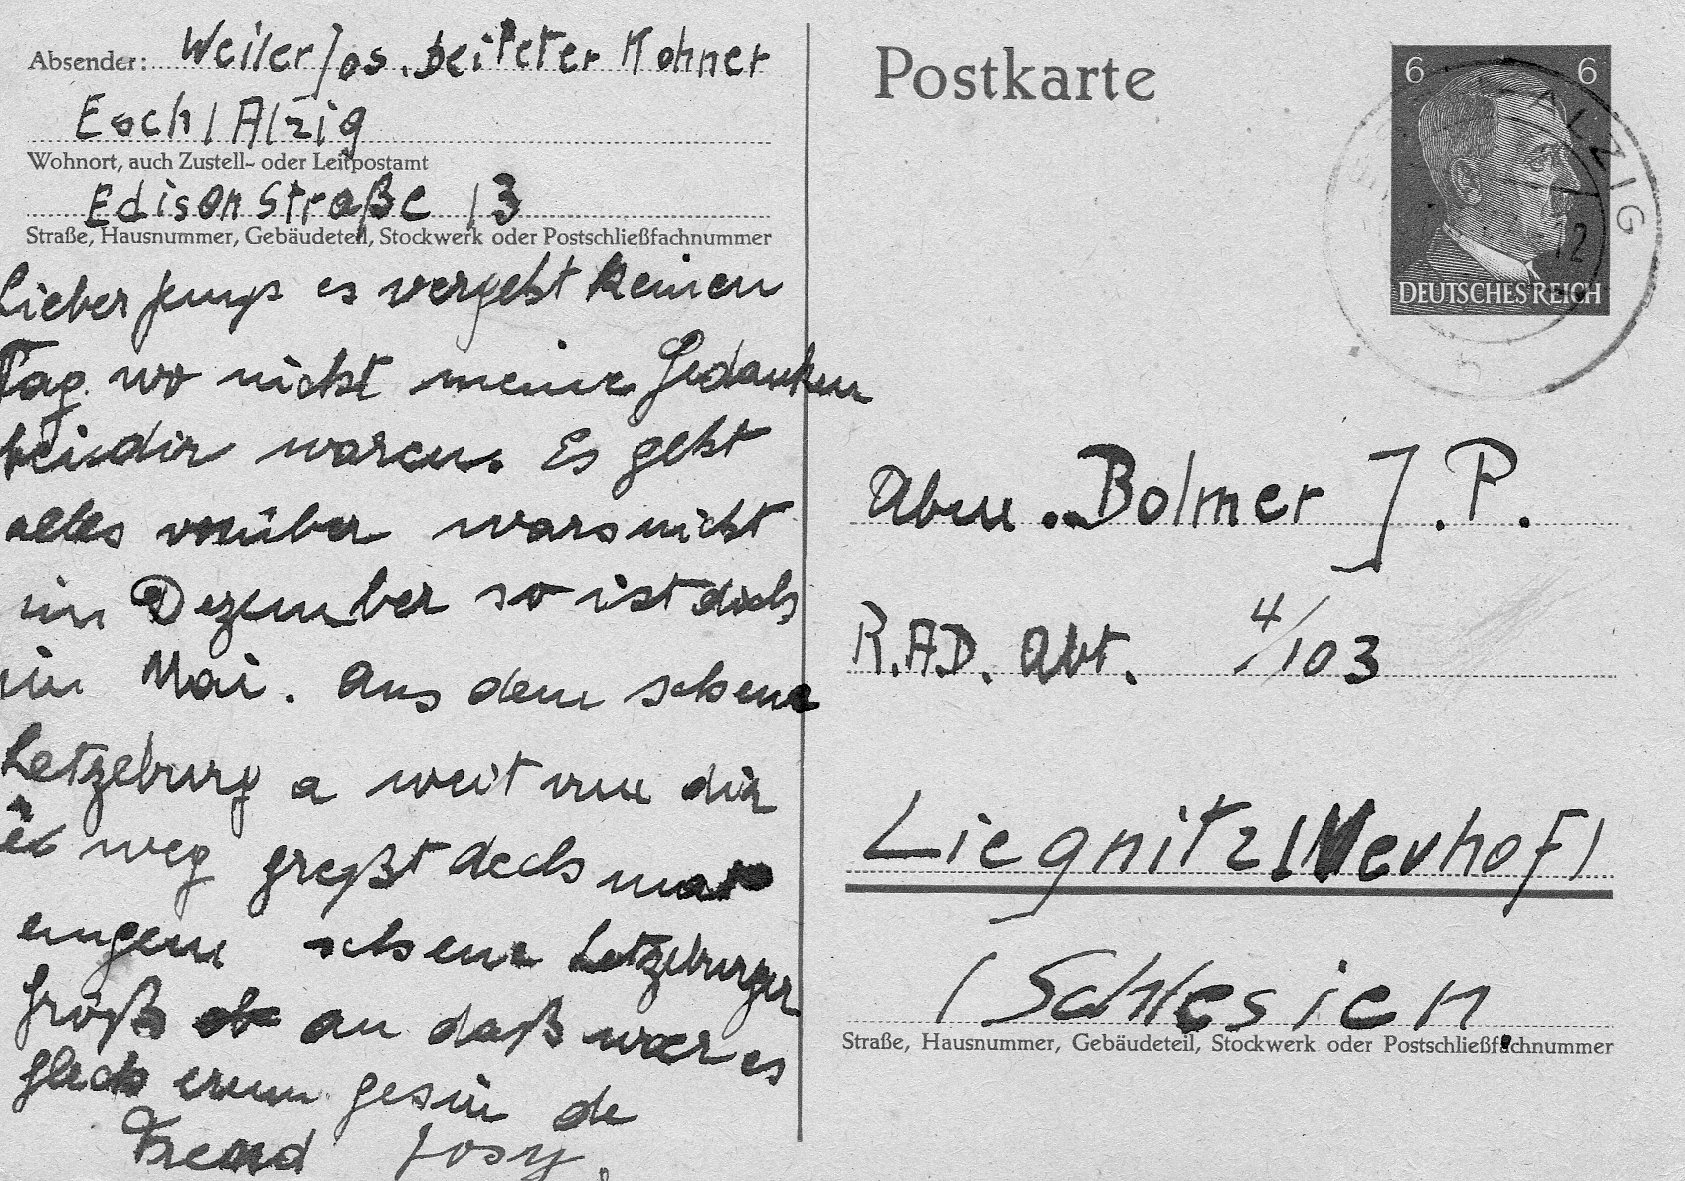 Absender: Weiler Jos. bei Peter Kohner
Esch / Alzig
Wohnort, auch Zustell- oder Leitpostamt
Edisonstraße 13
Straße, Hausnummer, Gebäudeteil, Stockwerk oder Postschließfachnummer
Lieber Jemp es vergeht keinen
Tag wo nicht meine Gedanken
bei dir waren. Es geht
alles vorüber wars nicht
im Dezember so ist doch
im Mai. Aus dem schene
Letzeburg a weit vun dir
weg greßt dech mat
engem schene Letzeburger
Gröβ an daß waer es
glech erem gesin de
Frend Josy.
Postkarte
6 6
DEUTSCHES REICH
ALZIG
12
Bolmer J. P.
R.A.D. Abt. 4/103
Liegnitz / Neuhof /
/ Schlesien.
Straße, Hausnummer, Gebäudeteil, Stockwerk oder Postschließfachnummer